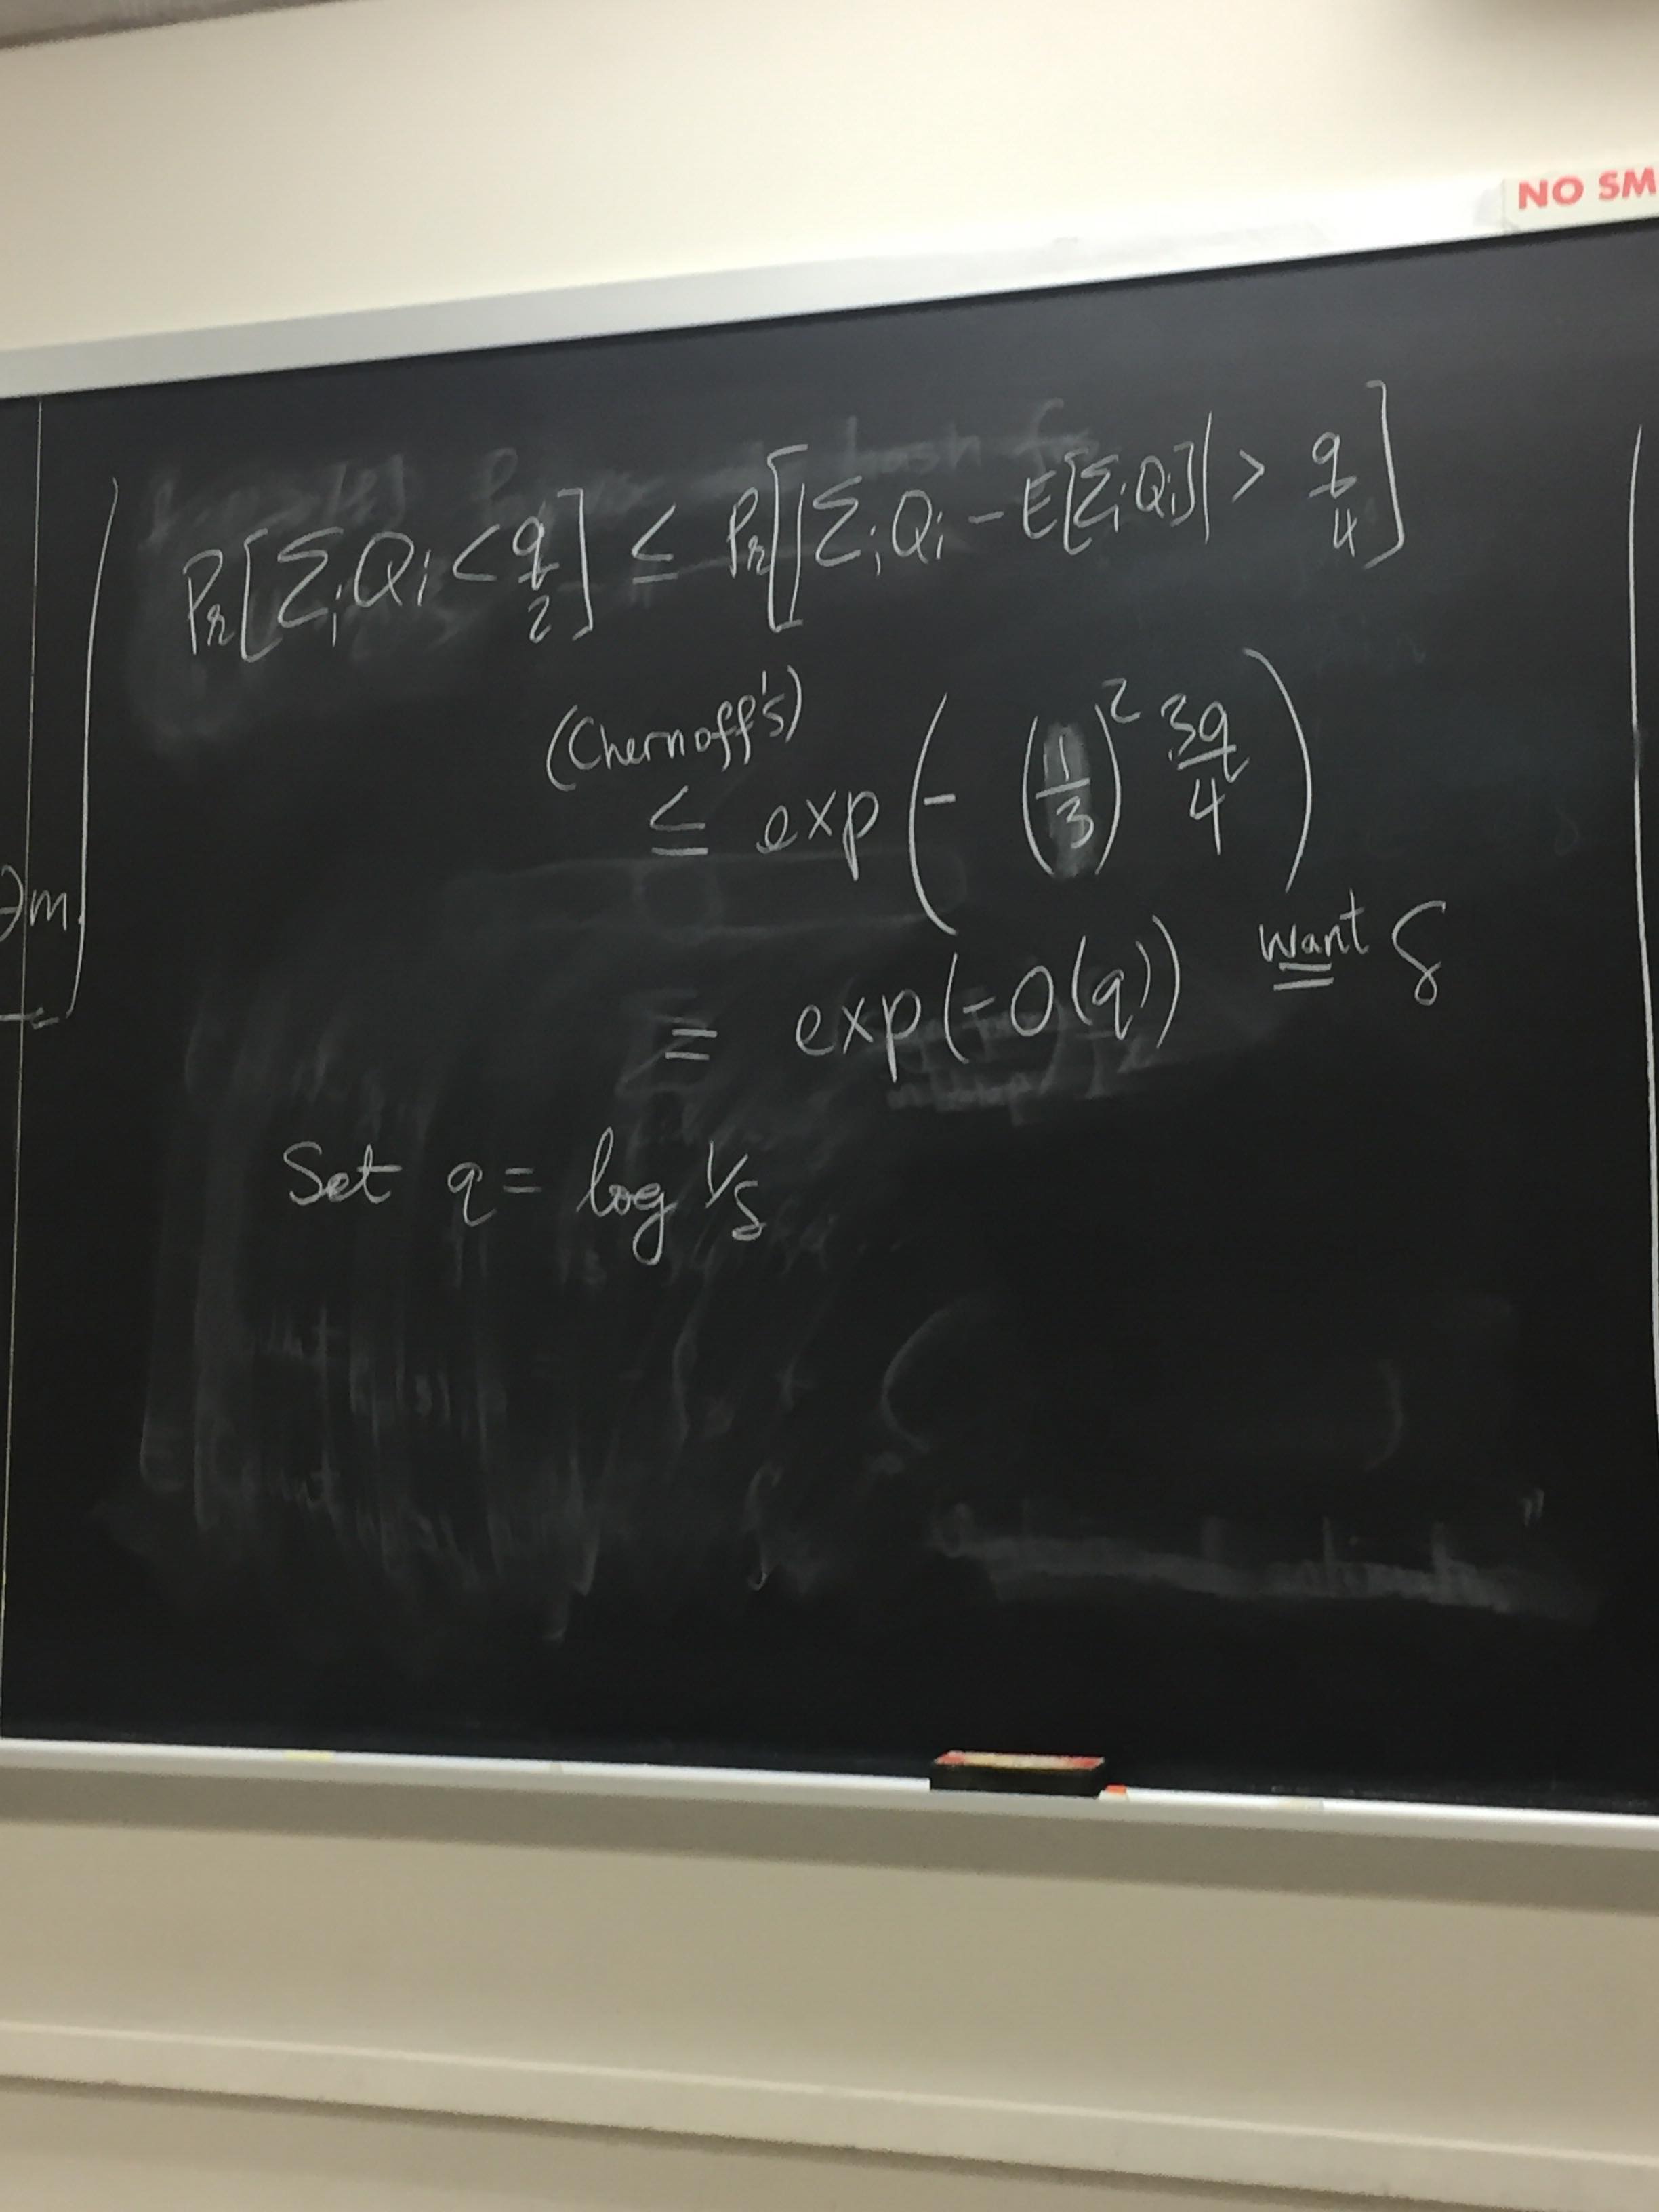 NO SM
Pr[Σᵢ Qᵢ < q/2] ≤ Pr[|Σᵢ Qᵢ - E[Σᵢ Qᵢ]| > q/4]
(Chernoff's)
≤ exp(- (1/3)² 3q/4)
= exp(-O(q)) want = δ
Set q = log 1/δ
m